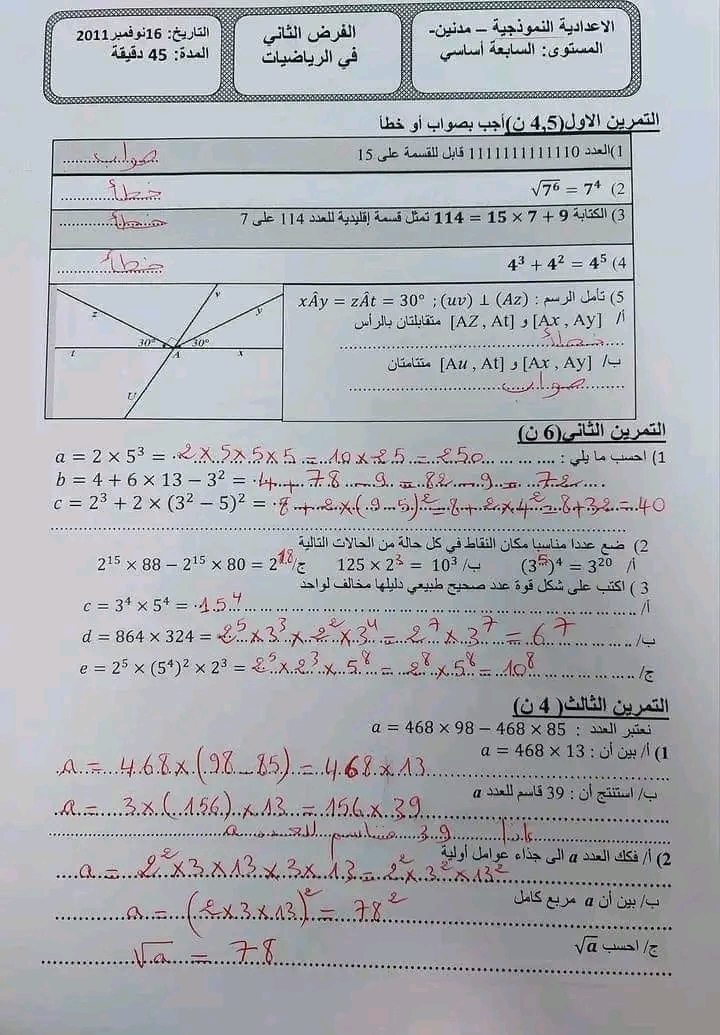 الاعدادية النموذجية – مدنين-
المستوى: السابعة أساسي
الفرض الثاني
في الرياضيات
التاريخ: 16نوفمبر 2011
المدة: 45 دقيقة
التمرين الاول(4,5 ن)أجب بصواب أو خطأ
1)العدد 1111111111110 قابل للقسمة على 15 صواب
2) √7⁶ = 7⁴ خطأ
3) الكتابة 114 = 15 × 7 + 9 تمثل قسمة إقليدية للعدد 114 على 7 خطأ
4) 4³ + 4² = 4⁵ خطأ
5) تأمل الرسم : xÂy = zÂt = 30° ; (uv) ⊥ (Az)
أ/ [Ax , Ay] و [AZ , At] متقابلتان بالرأس
خطأ
ب/ [Ax , Ay] و [Au , At] متتامتان
صواب
z v y
30° 30°
t A x
U
التمرين الثاني(6 ن)
1) احسب ما يلي : a = 2 × 5³ = 2 × 5 × 5 × 5 = 10 × 25 = 250
b = 4 + 6 × 13 − 3² = 4 + 78 − 9 = 82 − 9 = 72
c = 2³ + 2 × (3² − 5)² = 8 + 2 × (9 − 5)² = 8 + 2 × 4² = 8 + 32 = 40
2) ضع عددا مناسبا مكان النقاط في كل حالة من الحالات التالية
أ/ (3⁵)⁴ = 3²⁰ ب/ 125 × 2³ = 10³ ج/ 2¹⁵ × 88 − 2¹⁵ × 80 = 2¹⁸
3 ) اكتب على شكل قوة عدد صحيح طبيعي دليلها مخالف لواحد
أ/ c = 3⁴ × 5⁴ = 15⁴
ب/ d = 864 × 324 = 2⁵ × 3³ × 2² × 3⁴ = 2⁷ × 3⁷ = 6⁷
ج/ e = 2⁵ × (5⁴)² × 2³ = 2⁵ × 2³ × 5⁸ = 2⁸ × 5⁸ = 10⁸
التمرين الثالث( 4 ن)
نعتبر العدد : a = 468 × 98 − 468 × 85
1) أ/ بين أن : a = 468 × 13
a = 468 × (98 − 85) = 468 × 13
ب/ استنتج أن : 39 قاسم للعدد a
a = 3 × (156) × 13 = 156 × 39
إذا 39 قاسم للعدد a
2) أ/ فكك العدد a الى جذاء عوامل أولية
a = 2² × 3 × 13 × 3 × 13 = 2² × 3² × 13²
ب/ بين أن a مربع كامل
a = (2 × 3 × 13)² = 78²
ج/ احسب √a
√a = 78